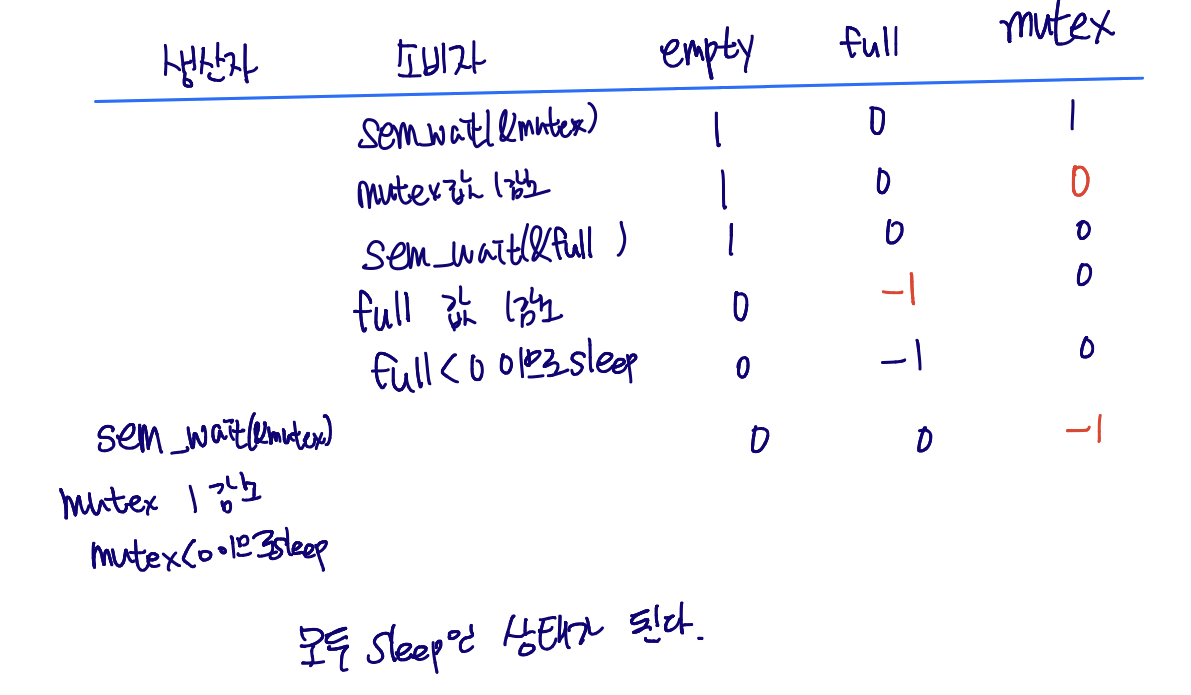 생산자 소비자 empty full mutex
sem_wait(&mutex) 1 0 1
mutex값 1감소 1 0 0
sem_wait(&full ) 1 0 0
full 값 1감소 0 -1 0
full<0 이므로 sleep 0 -1 0
sem_wait(&mutex) 0 0 -1
mutex 1감소
mutex<0이므로sleep
모두 sleep인 상태가 된다.